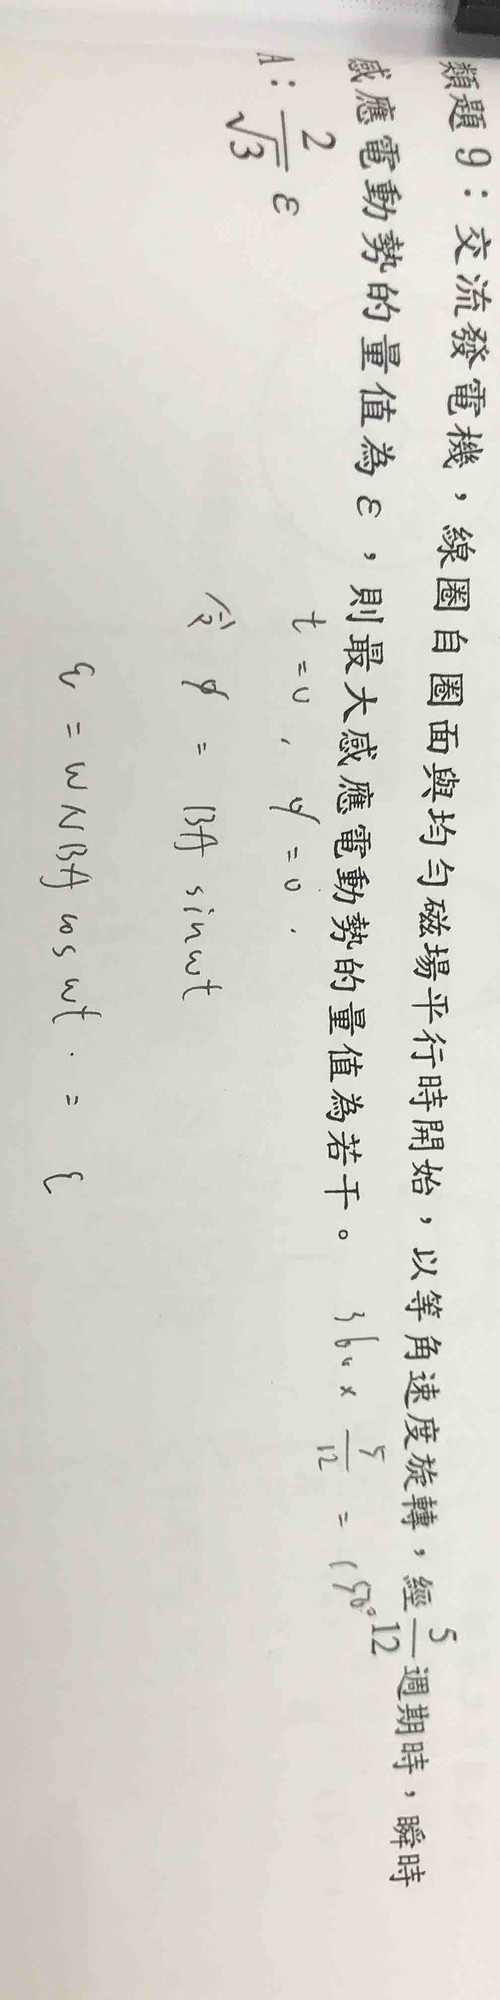 類題 9：交流發電機，線圈自圈面與均勻磁場平行時開始，以等角速度旋轉，經 5/12 週期時，瞬時
感應電動勢的量值為 ε，則最大感應電動勢的量值為若干。 360 × 5/12 = 150°
A： 2/√3 ε
t = 0 , φ = 0 .
令 φ = BA sin wt
ε = w N B A cos wt . = ε